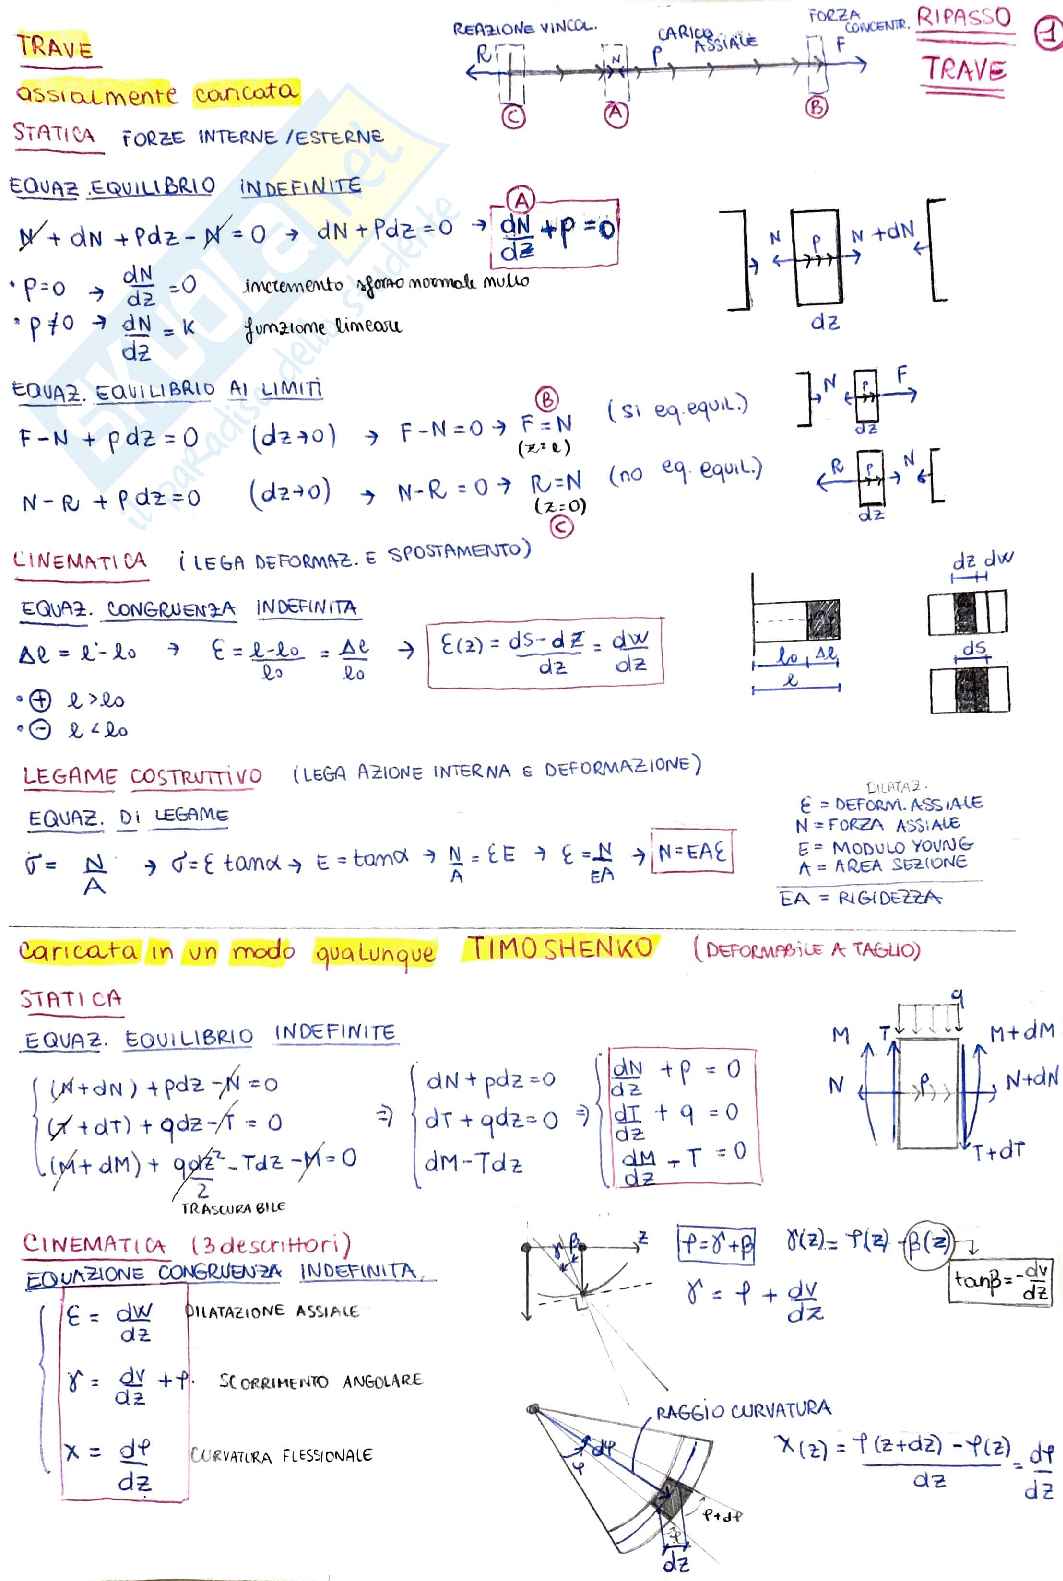 RIPASSO
TRAVE
1
TRAVE
assialmente caricata
REAZIONE VINCOL.
CARICO ASSIALE
FORZA CONCENTR.
R N P F
C A B
STATICA FORZE INTERNE / ESTERNE
EQUAZ. EQUILIBRIO INDEFINITE
N + dN + Pdz - N = 0 → dN + Pdz = 0 → dN/dz + P = 0
A
• P=0 → dN/dz = 0 incremento sforzo normale nullo
• P≠0 → dN/dz = K funzione lineare
N P N+dN
dz
EQUAZ. EQUILIBRIO AI LIMITI
F-N + pdz = 0 (dz→0) → F-N=0 → F=N (si eq. equil.)
B
(z=l)
N P F
dz
N-R + Pdz=0 (dz→0) → N-R=0 → R=N (no eq. equil.)
(z=0)
C
R P N
dz
CINEMATICA (LEGA DEFORMAZ. E SPOSTAMENTO)
EQUAZ. CONGRUENZA INDEFINITA
Δl = l - l0 → ε = l-l0/l0 = Δl/l0 → ε(z) = ds-dz/dz = dw/dz
• ⊕ l > l0
• ⊖ l < l0
l0 Δl
l
dz dw
ds
LEGAME COSTRUTTIVO (LEGA AZIONE INTERNA E DEFORMAZIONE)
EQUAZ. DI LEGAME
σ = N/A → σ = ε tanα → E = tanα → N/A = εE → ε = N/EA → N=EAε
DILATAZ.
ε = DEFORM. ASSIALE
N = FORZA ASSIALE
E = MODULO YOUNG
A = AREA SEZIONE
EA = RIGIDEZZA
caricata in un modo qualunque TIMOSHENKO (DEFORMABILE A TAGLIO)
STATICA
EQUAZ. EQUILIBRIO INDEFINITE
(N+dN) + pdz - N = 0
(T+dT) + qdz - T = 0
(M+dM) + qdz²/2 - Tdz - M = 0
TRASCURABILE
⇒ dN + pdz = 0
dT + qdz = 0
dM - Tdz
⇒ dN/dz + P = 0
dT/dz + q = 0
dM/dz - T = 0
q
M T M+dM
N P N+dN
T+dT
CINEMATICA (3 descrittori)
EQUAZIONE CONGRUENZA INDEFINITA.
ε = dw/dz DILATAZIONE ASSIALE
γ = dv/dz + φ. SCORRIMENTO ANGOLARE
χ = dφ/dz CURVATURA FLESSIONALE
γ β z
φ=γ+β γ(z) = φ(z) - β(z)
tanβ = -dv/dz
γ = φ + dv/dz
RAGGIO CURVATURA
dφ
φ
φ+dφ
dz
χ(z) = φ(z+dz) - φ(z)/dz = dφ/dz
SKUOLA.net
il paradiso dello studente